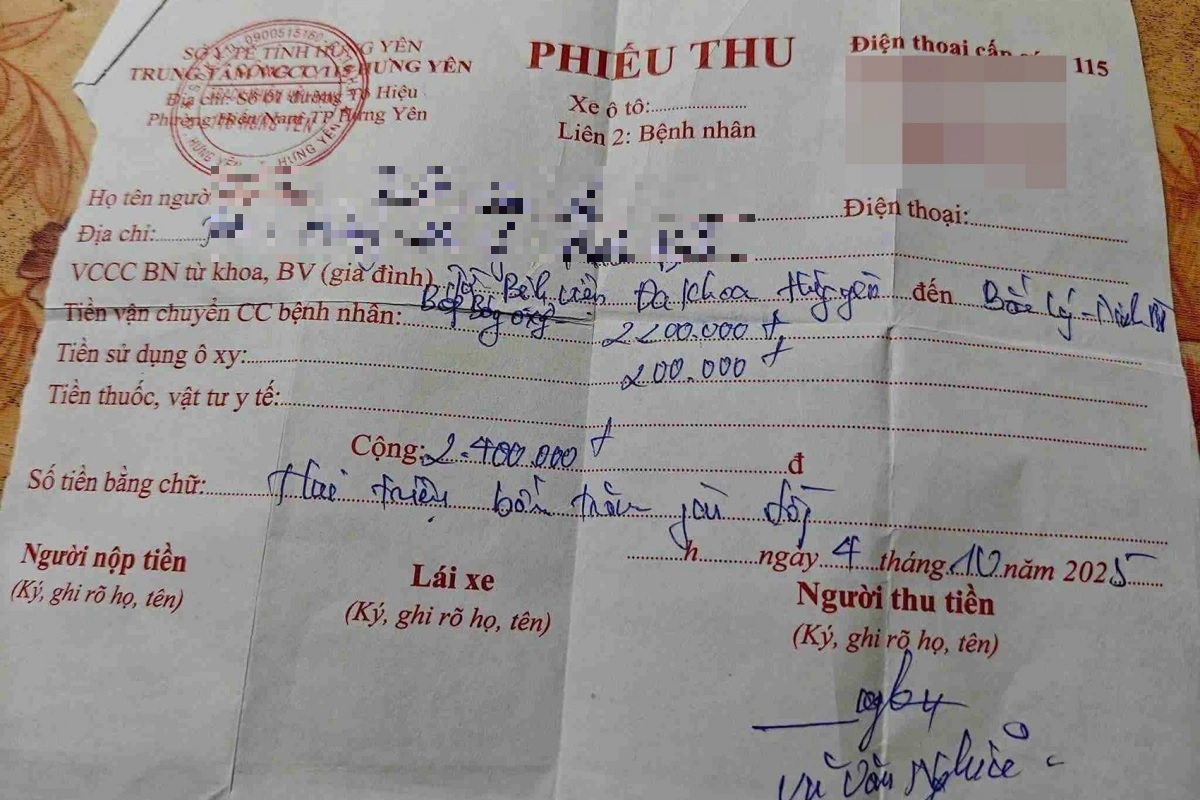 SỞ Y TẾ TỈNH HƯNG YÊN
TRUNG TÂM VCCC 115 HƯNG YÊN
Địa chỉ: Số 01 đường Tô Hiệu
Phường Hiến Nam TP Hưng Yên
0900515160
HƯNG YÊN - T. HƯNG YÊN
PHIẾU THU
Xe ô tô:
Liên 2: Bệnh nhân
Điện thoại cấp 115
Họ tên người Điện thoại:
Địa chỉ:
VCCC BN từ khoa, BV (gia đình) Từ Bệnh viện Đa khoa Hưng yên đến Bắc Lý - Ninh
Tiền vận chuyển CC bệnh nhân: Bóp Bóng ôxy 2200.000đ
Tiền sử dụng ô xy: 200.000đ
Tiền thuốc, vật tư y tế:
Cộng: 2.400.000đ đ
Số tiền bằng chữ: Hai triệu bốn trăm ngàn đồng
h ngày 4 tháng 10 năm 2025
Người nộp tiền
(Ký, ghi rõ họ, tên)
Lái xe
(Ký, ghi rõ họ, tên)
Người thu tiền
(Ký, ghi rõ họ, tên)
Vũ Văn